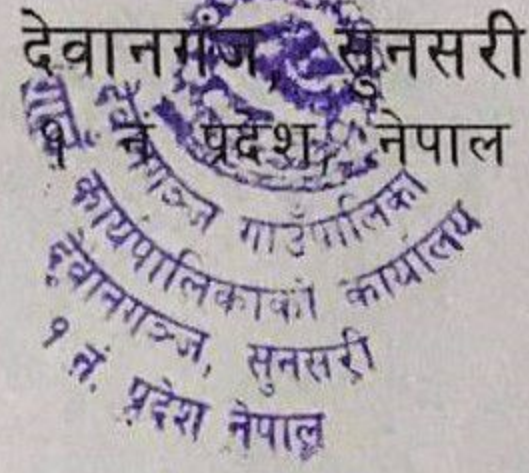 देवानगंज, सुनसरी
१ नं प्रदेश, नेपाल
देवानगञ्ज गाउँपालिका
गाउँ कार्यपालिकाको कार्यालय
देवानगञ्ज, सुनसरी
१ नं. प्रदेश नेपाल